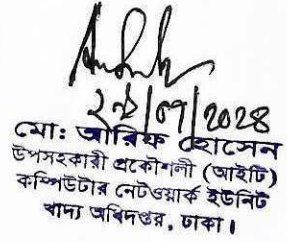 মো: আরিফ হোসেন
উপসহকারী প্রকৌশলী (আইটি)
কম্পিউটার নেটওয়ার্ক ইউনিট
খাদ্য অধিদপ্তর, ঢাকা।